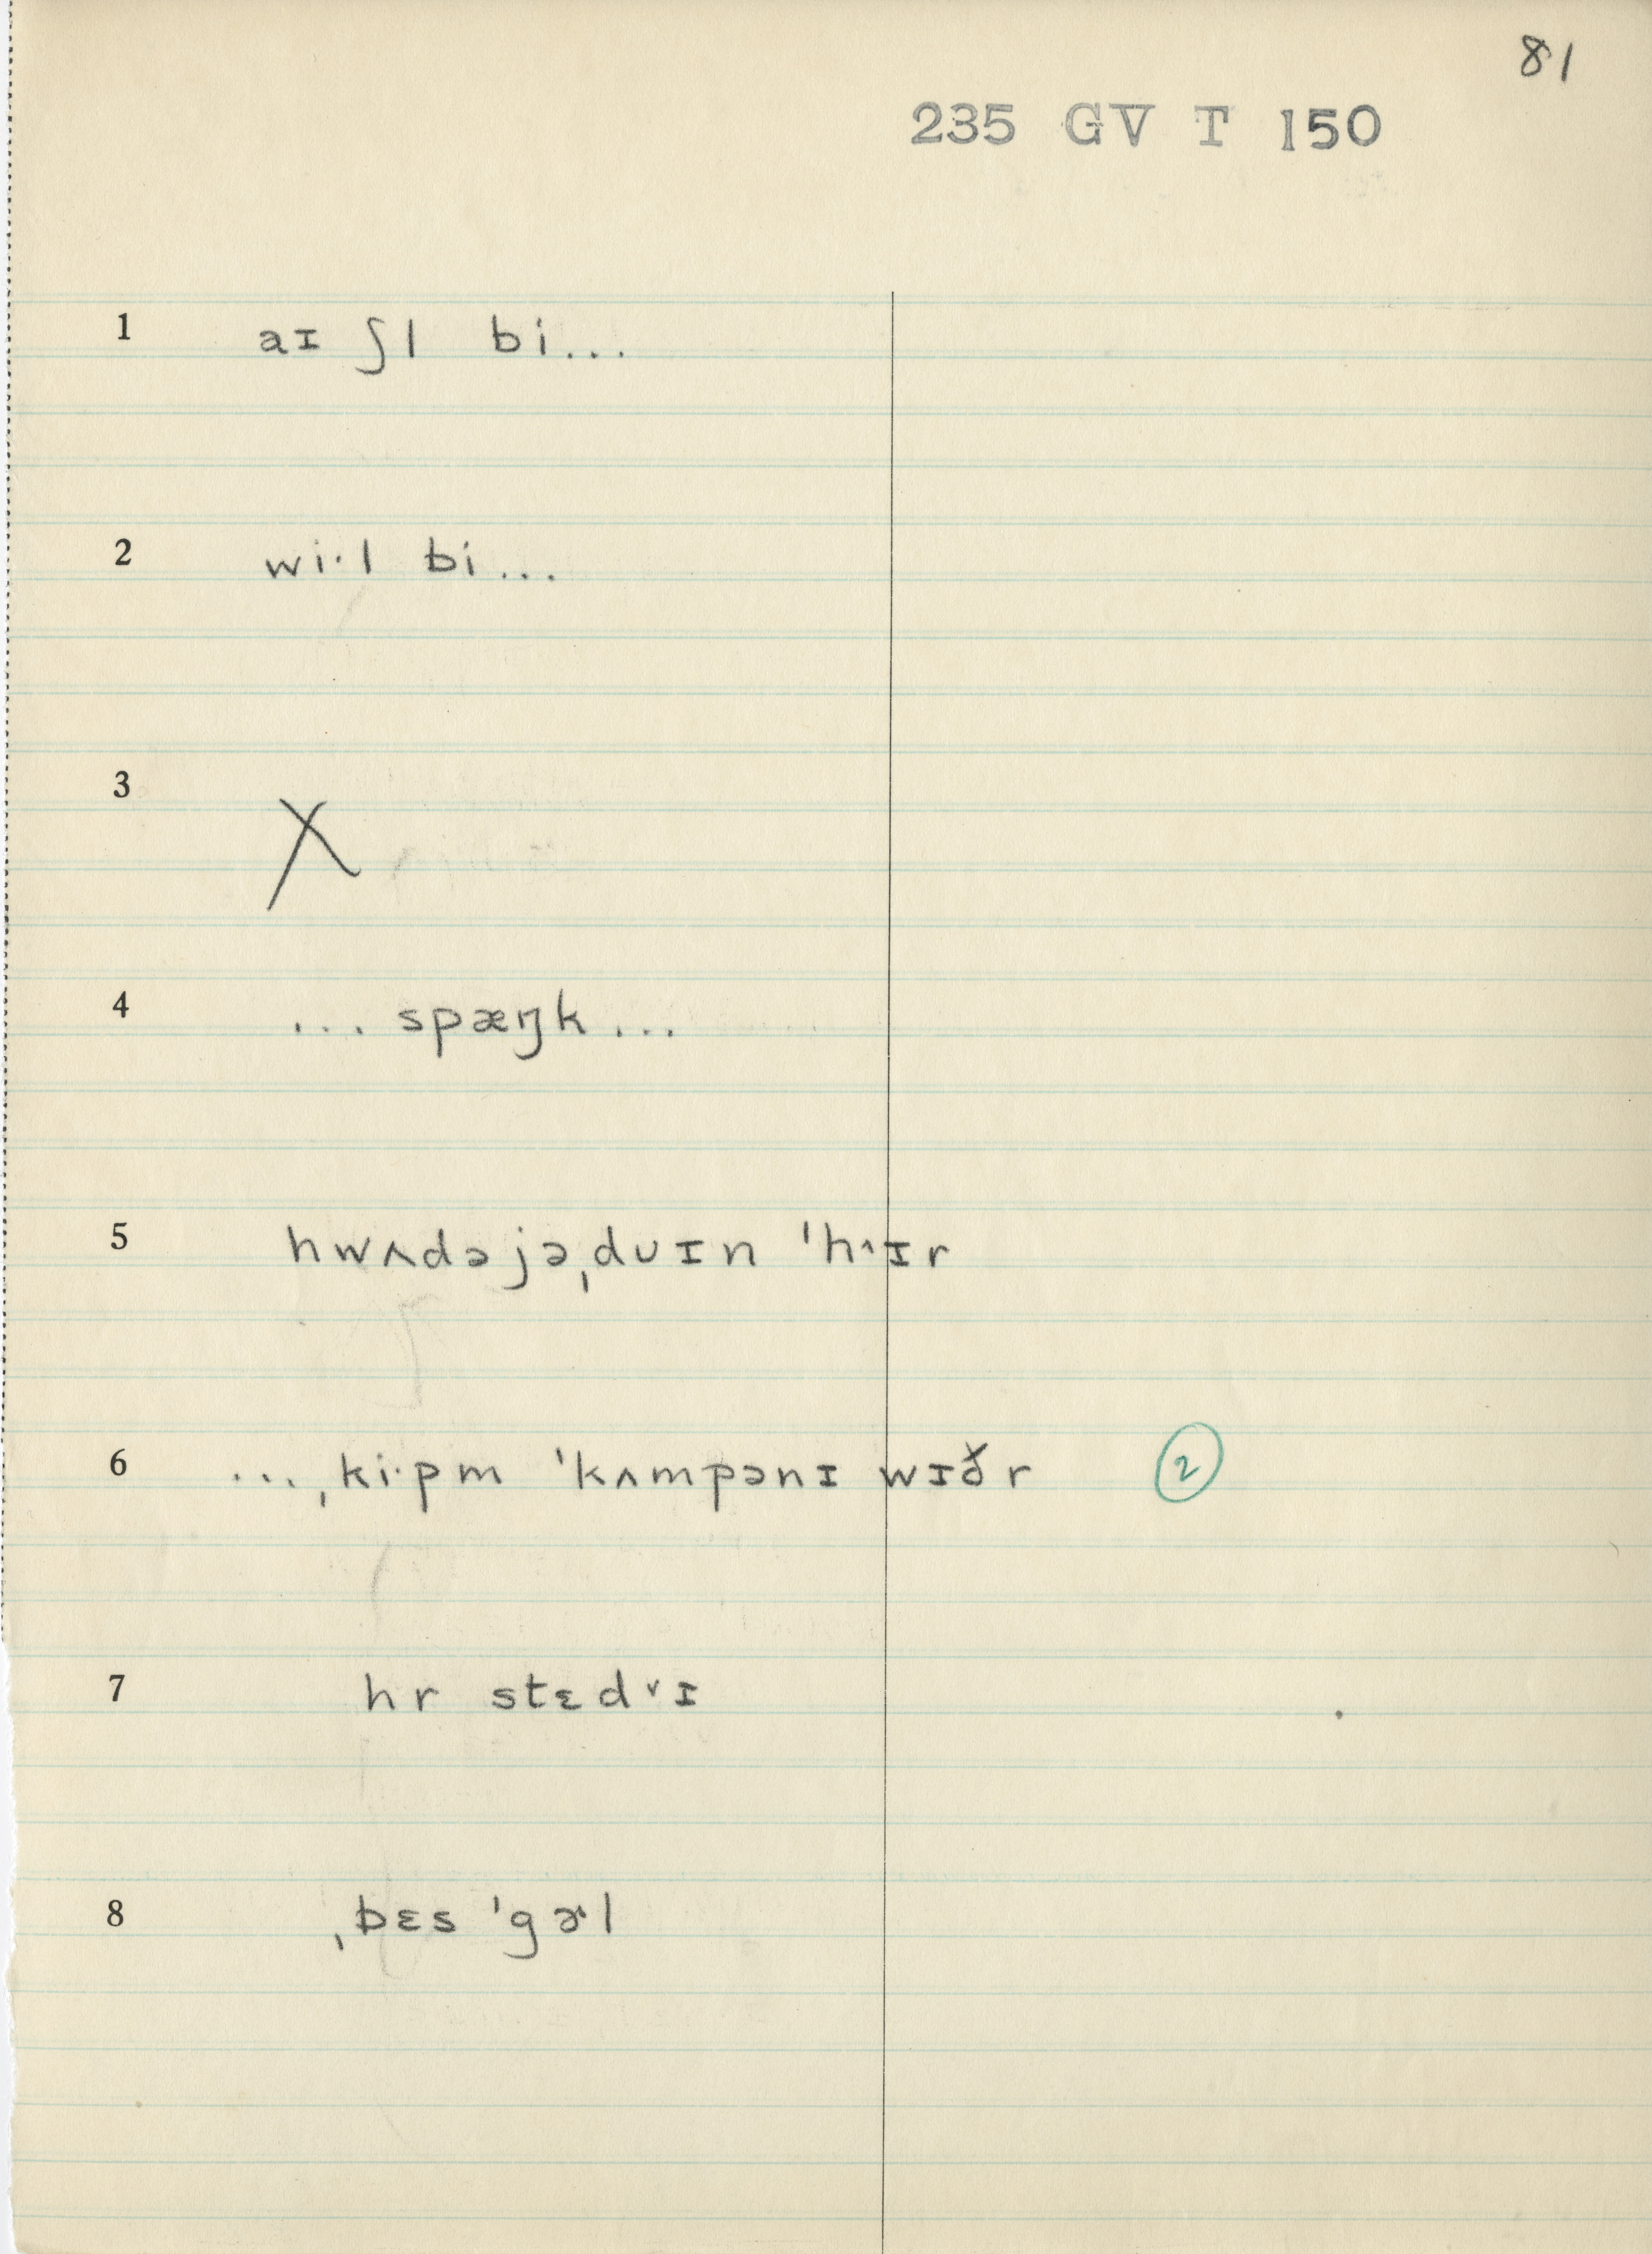 81
235 GV T 150
1 aɪ ʃl bi...
2 wi·l bi...
3 X
4 ... spæŋk...
5 hwʌdə jəˌduɪn ˈh˄ɪr
6 ...ˌki·pm ˈkʌmpənɪ wɪðr 2
7 hr stɛd˅ɪ
8 ˌbɛs ˈgɚl